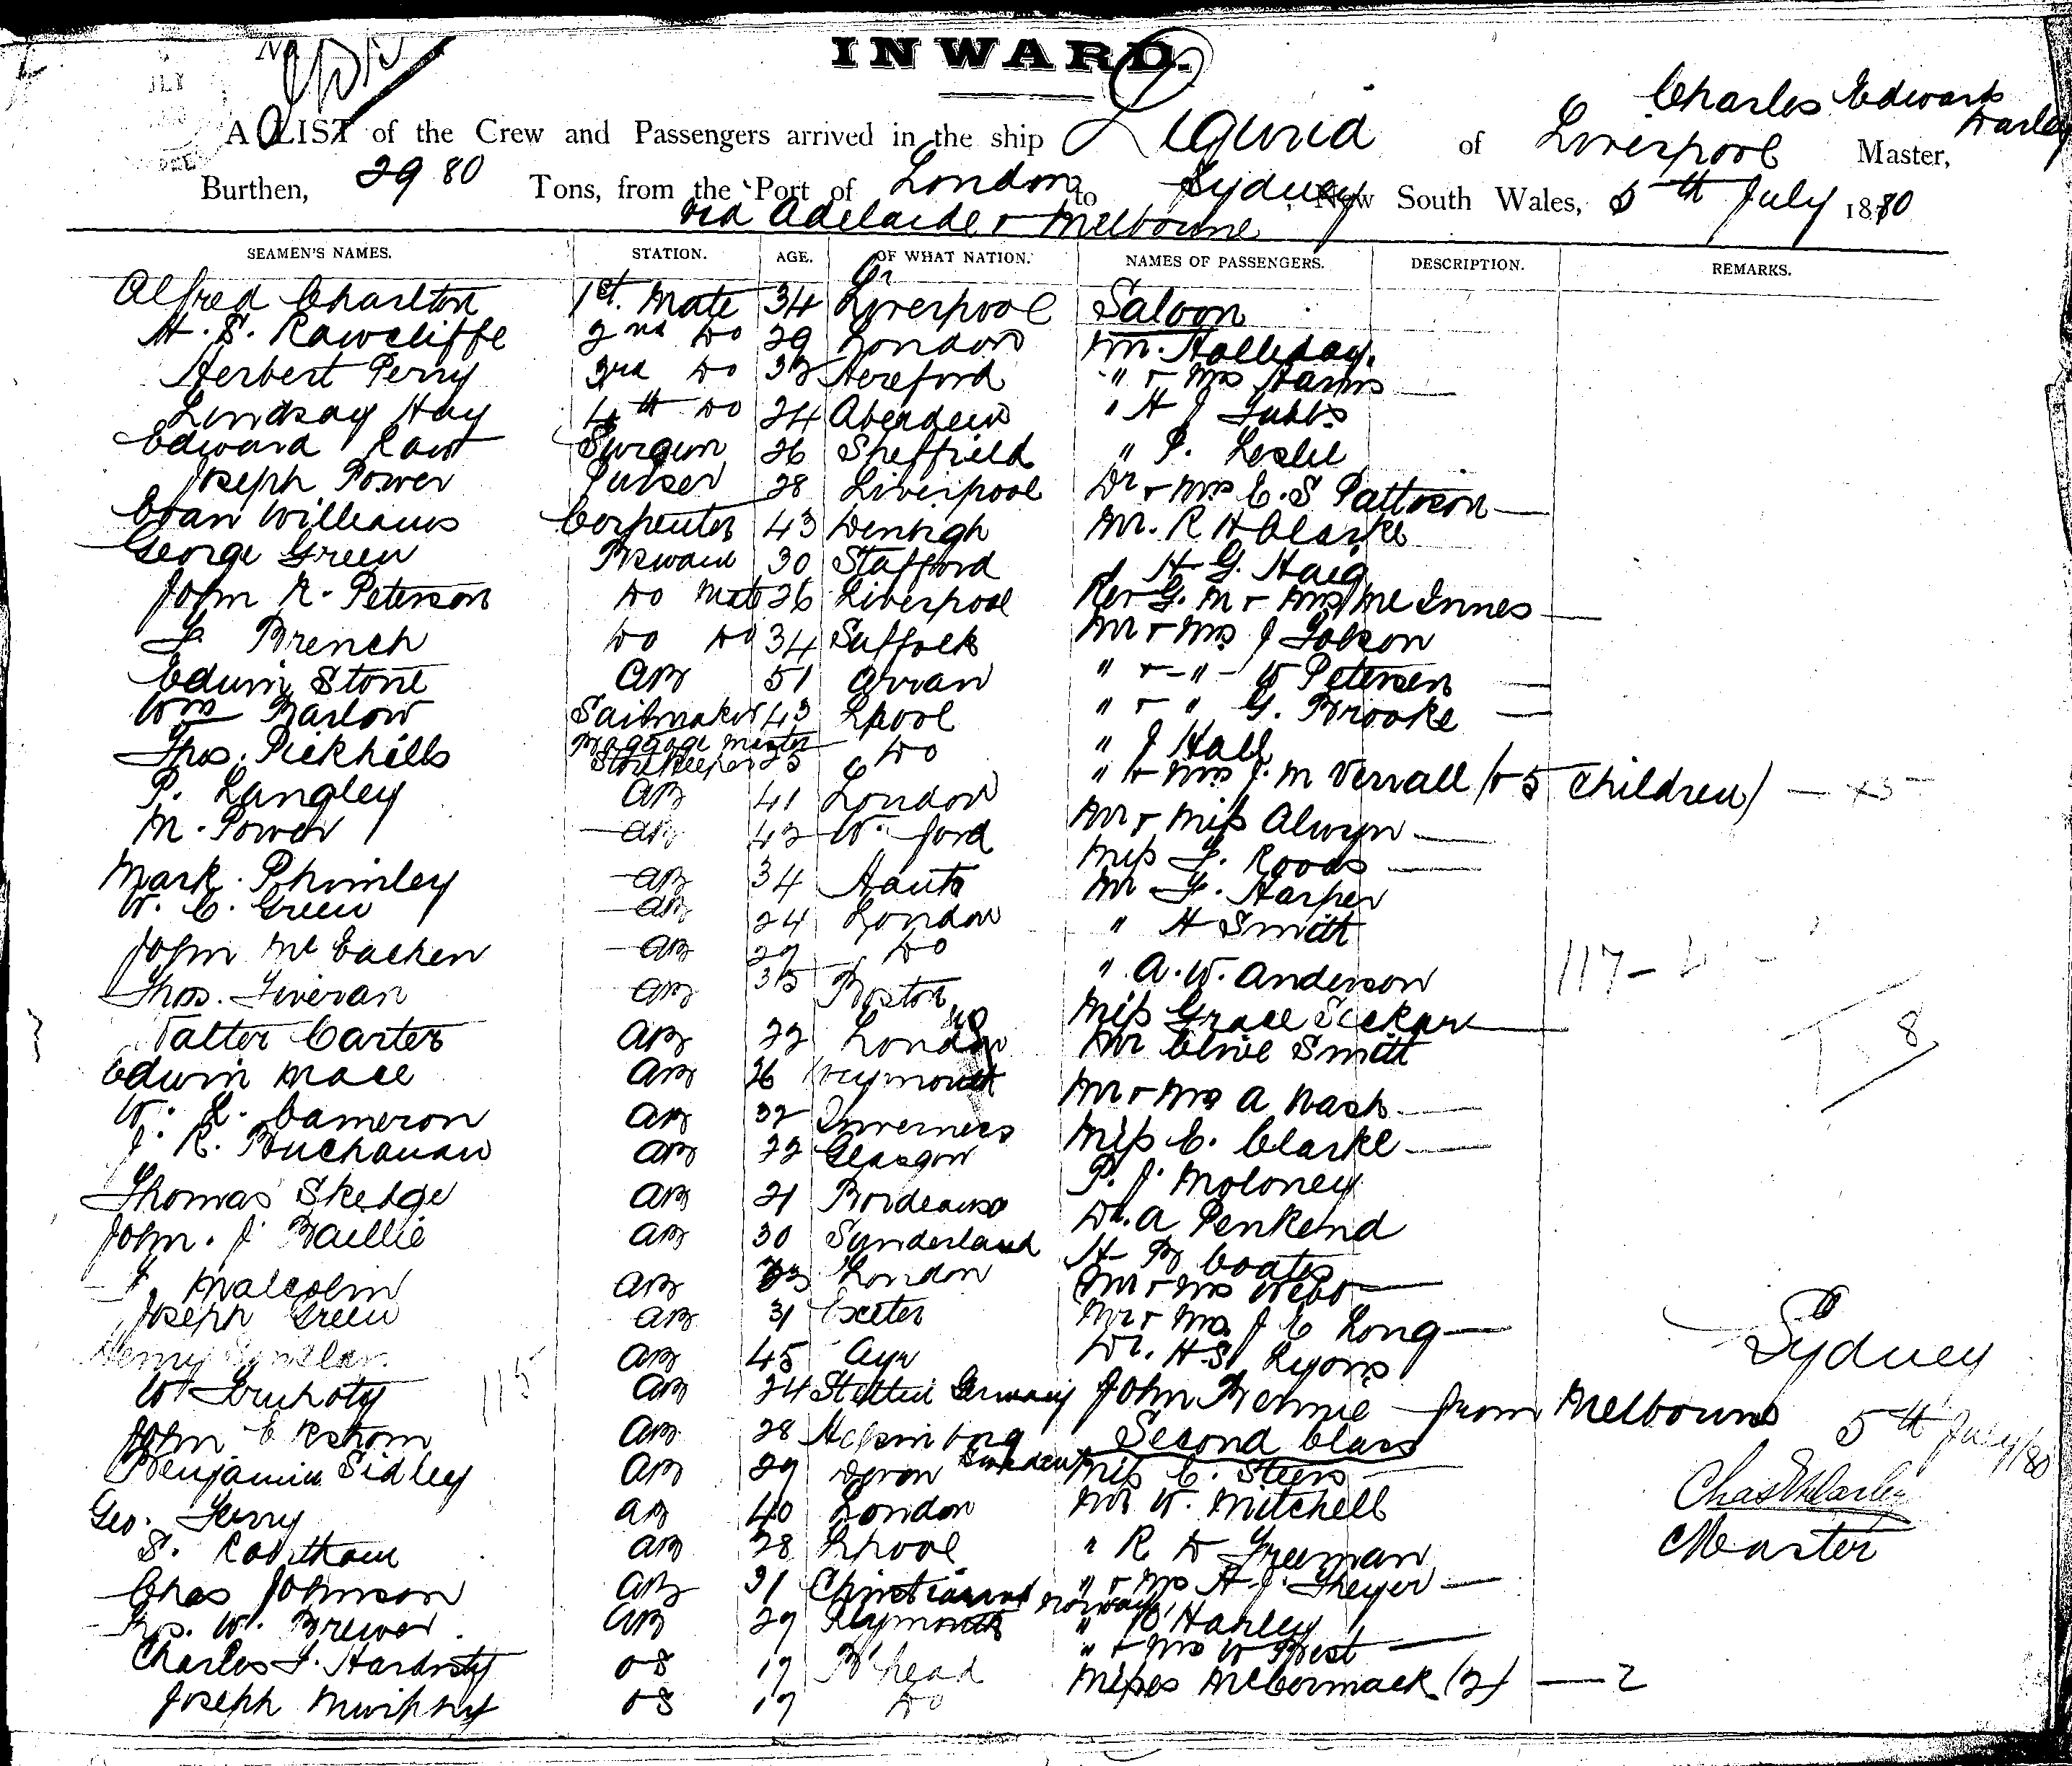 INWARD.
A LIST of the Crew and Passengers arrived in the ship Liguria of Liverpool Charles Edward Darley Master,
Burthen, 2980 Tons, from the Port of London to Sydney, New South Wales, 5th July 1880
via Adelaide & Melbourne
SEAMEN'S NAMES. STATION. AGE. OF WHAT NATION. NAMES OF PASSENGERS. DESCRIPTION. REMARKS.
Alfred Charlton 1st. Mate 34 Liverpool Saloon
H. S. Rawcliffe 2nd Do 29 London Mr. Holleday.
Herbert Perry 3rd Do Hereford " & Mrs Harris
Lindsay Hay 4th Do 24 Aberdeen " H J Tubbs
Edward Rawt Surgeon 26 Sheffield " P. Leslie
Joseph Power Purser 28 Liverpool Dr & Mrs E. S Pattison
Evan Williams Carpenter 43 Denbigh Mr. R H Clarke
George Green Bswain 30 Stafford " H. G. Haig
John R. Peterson Do Mate 26 Liverpool Rev G. M & Mrs McInnes
Brench Do Do 34 Suffolk Mr & Mrs J Gobson
Edwin Stone AB 51 Arran " & " W Petersen
Wm Barlow Sailmaker 43 Lpool " & " G. Brooke
Thos. Pickhills Baggage Master Storekeeper 25 Do " J Hall
P. Langley AB 41 London " & Mrs J. M Verrall (& 5 Children)
M. Power AB 42 W.ford Mr & Miss Alwyn
Mark Phimley AB 34 Hants Miss Roods
W. C. Green AB 24 London Mr F. Harper
John McEachen AB 29 Do " H Smith
Thos. AB 35 Boston " A. W. Anderson
Walter Carter AB 22 London Miss Grace
Edwin Mace AB 26 Weymouth Mr Clive Smith
W. L. Cameron AB 32 Inverness Mr & Mrs A Nash
J. R. Buchanan AB 22 Glasgow Miss E. Clarke
Thomas Skedge AB 21 Bordeaux P. J. Moloney
John. J Baillie AB 30 Sunderland Dr. A Penkend
Malcolm AB London H B Coates
Joseph Green AB 31 Exeter Mr & Mrs Webb
Henry AB 45 Ayr Mr & Mrs J E Long
W AB 24 Stettin Germany Dr. H S Lyons
John Ekstrom AB 28 John Rennie from Melbourne
Benjamin Sidley AB 29 Devon Sweden Second Class
Geo. Ferry AB 40 London Miss E. Steers
S. AB 28 Lpool Mr W. Mitchell
Chas Johnson AB 31 Norway " R D Freeman
Thos. W. Brewer AB 29 Plymouth " & Mrs H. J. Theyer
Charles J. Hardisty OS 17 B'head " Harley
Joseph Murphy OS 17 Do " & Mrs W Best
Misses McCormack (2) 2
117
8
115
Sydney
5th July/80
Chas E Darley
Master